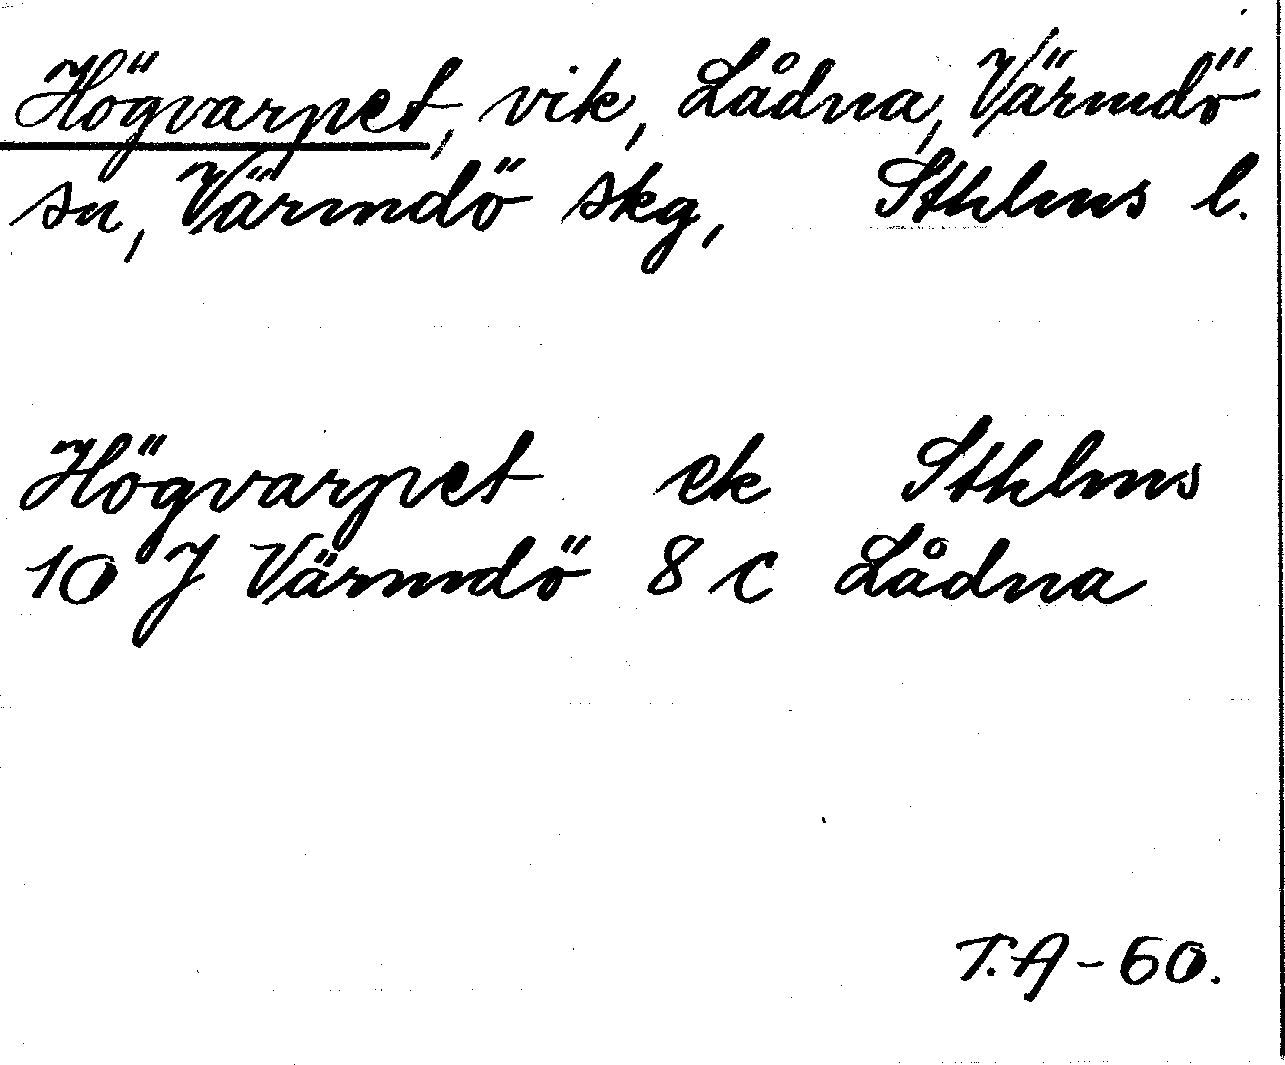 Högvarpet, vik, Lådna, Värmdö
sn, Värmdö skg, Sthlms l.
Högvarpet ek Sthlms
10 J Värmdö 8 c Lådna
T.A - 60.